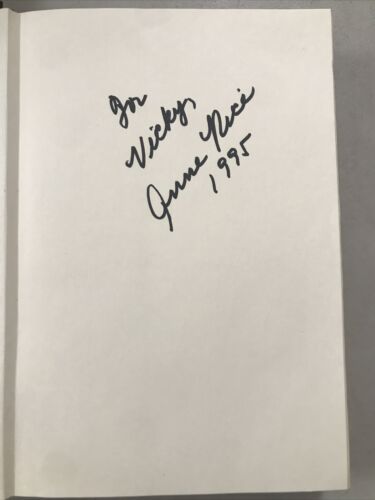 For
Vicky,
Anne Rice
1995